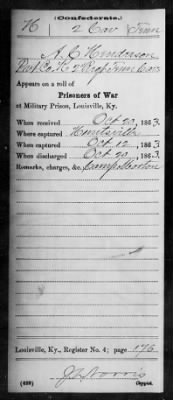 (Confederate.)
76 2 Cav Tenn
A. C. Henderson
Pvt Co. K 2 Reg Tenn Cav.
Appears on a roll of
Prisoners of War
at Military Prison, Louisville, Ky.
When received Oct 20, 1863
Where captured Huntsville
When captured Oct 12, 1863
When discharged Oct 20, 1863
Remarks, charges, &c. Camp Morton
Louisville, Ky., Register No. 4; page 176
J L Norris
(639) Copyist.